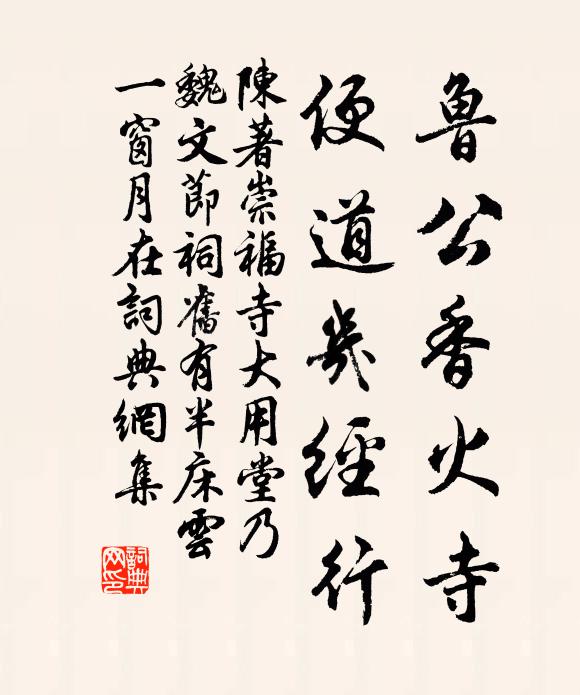 魯公香火寺
便道幾經行
陳著崇福寺大用堂乃
魏文節祠舊有半床雲
一窗月在詞典網集
詞典网印